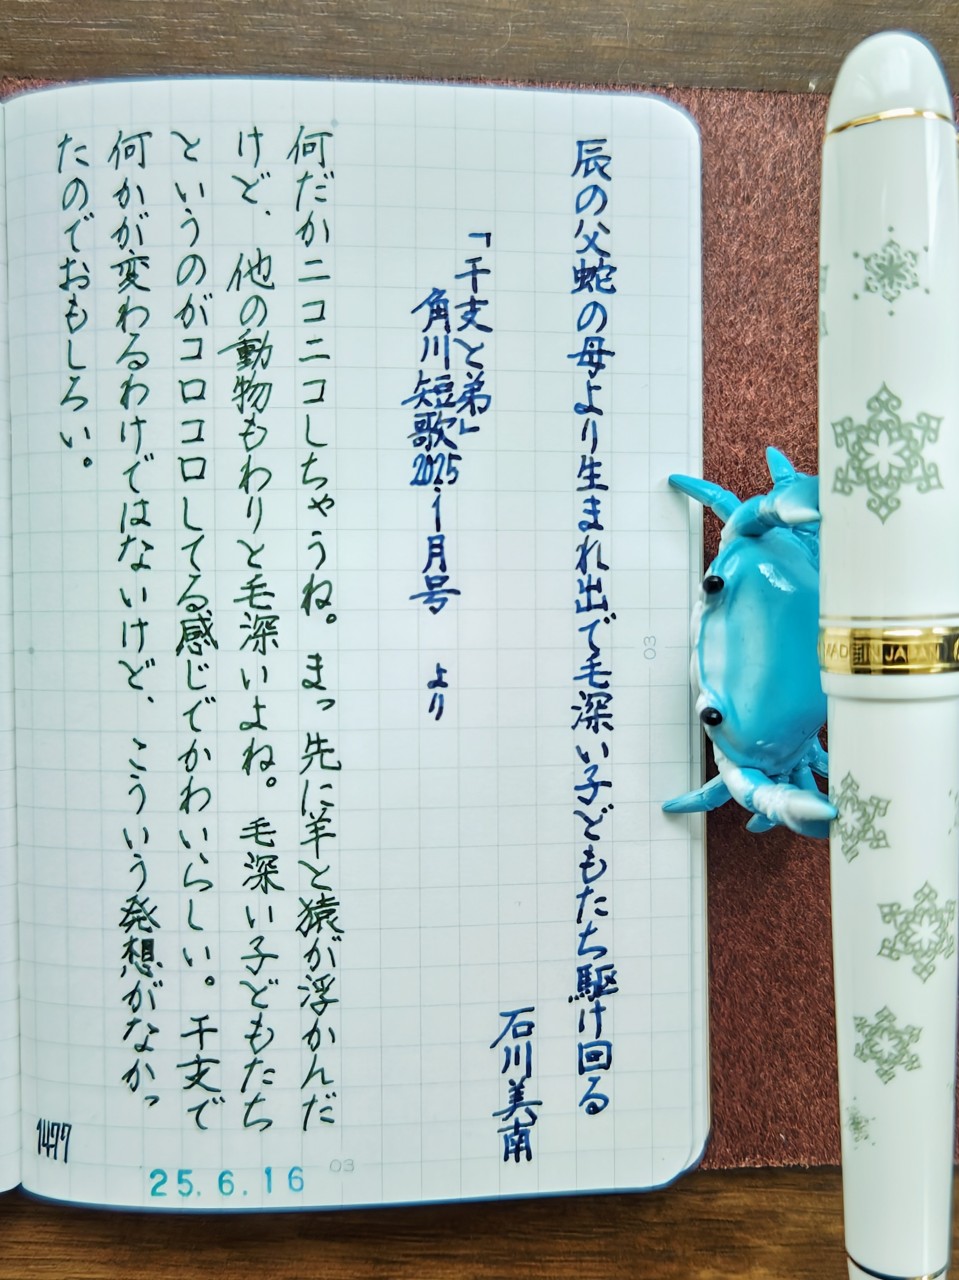 辰の父蛇の母より生まれ出で毛深い子どもたち駆け回る
石川美南
「干支と弟」
角川短歌2025年1月号 より
何だかニコニコしちゃうね。まっ先に羊と猿が浮かんだ
けど、他の動物もわりと毛深いよね。毛深い子どもたち
というのがコロコロしてる感じでかわいらしい。干支で
何かが変わるわけではないけど、こういう発想がなかっ
たのでおもしろい。
1477
25.6.16
03
03
MADE IN JAPAN